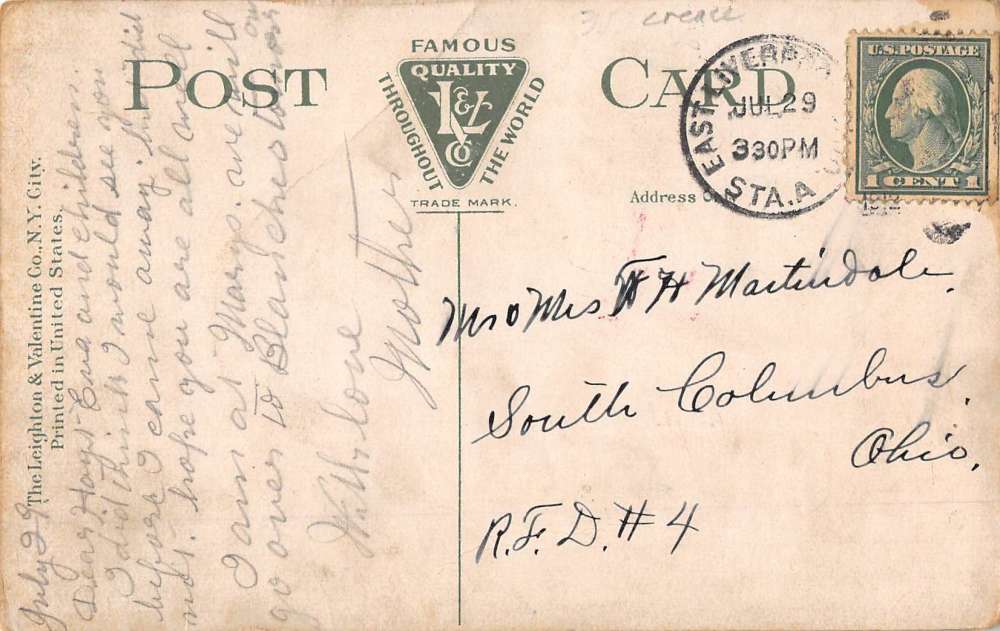 3 crease
POST CARD
FAMOUS
QUALITY
THROUGHOUT
THE WORLD
L & V
Co
TRADE MARK.
EAST LIVERPOOL
JUL 29
330PM
STA. A
U.S. POSTAGE
1 CENT 1
Address
Mr & Mrs W H Martindale
South Columbus,
Ohio,
R.F.D. #4
The Leighton & Valentine Co., N.Y. City.
Printed in United States.
July 29
Dear Hays Eva and children.
I did think I would see you
before I came away, but did
not. hope you are all well
I am at Marys. we will
go over to Blanches
With love
Mother